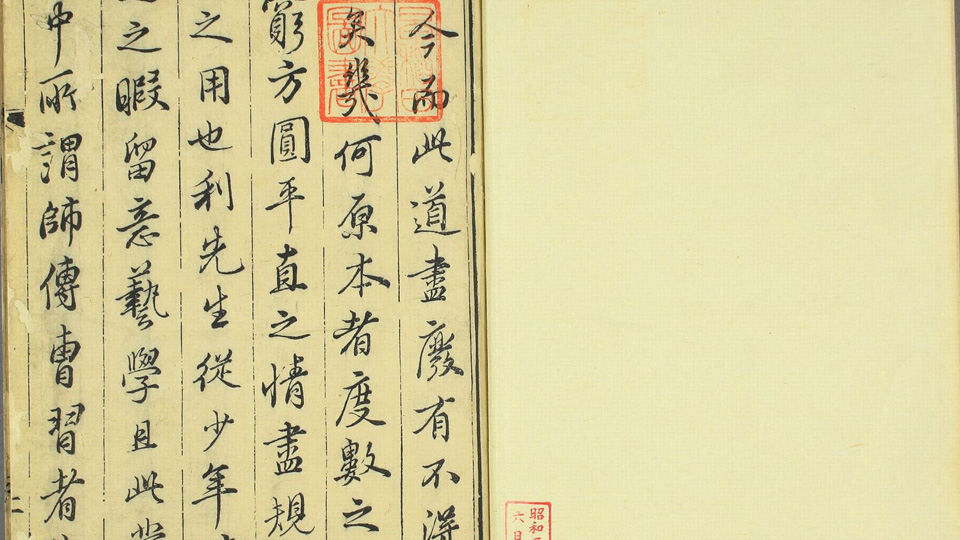 今而此道盡廢有不得
矣幾何原本者度數之
窮方圓平直之情盡規
之用也利先生從少年
之暇留意藝學且此
中所謂師傳曹習者
昭和
六